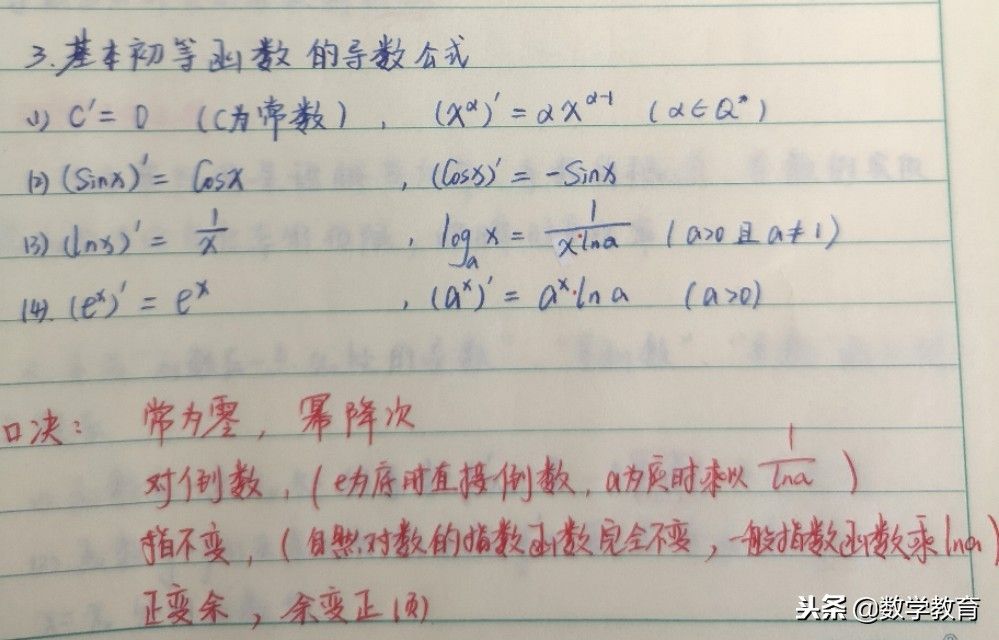 3.基本初等函数的导数公式
(1) C'=0 (C为常数), (x^α)'=αx^(α-1) (α∈Q*)
(2) (Sinx)'=Cosx , (Cosx)'=-Sinx
(3) (lnx)'=1/x , log_a x=1/(x·lna) (a>0且a≠1)
(4) (e^x)'=e^x , (a^x)'=a^x·lna (a>0)
口决: 常为零, 幂降次
对倒数, (e为底时直接倒数, a为底时乘以 1/lna)
指不变, (自然对数的指数函数完全不变, 一般指数函数乘lna)
正变余, 余变正(负)
头条 @数学教育